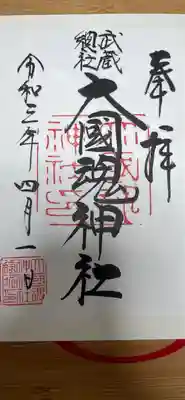 奉拝
武蔵
総社
大國魂神社
令和三年四月一日